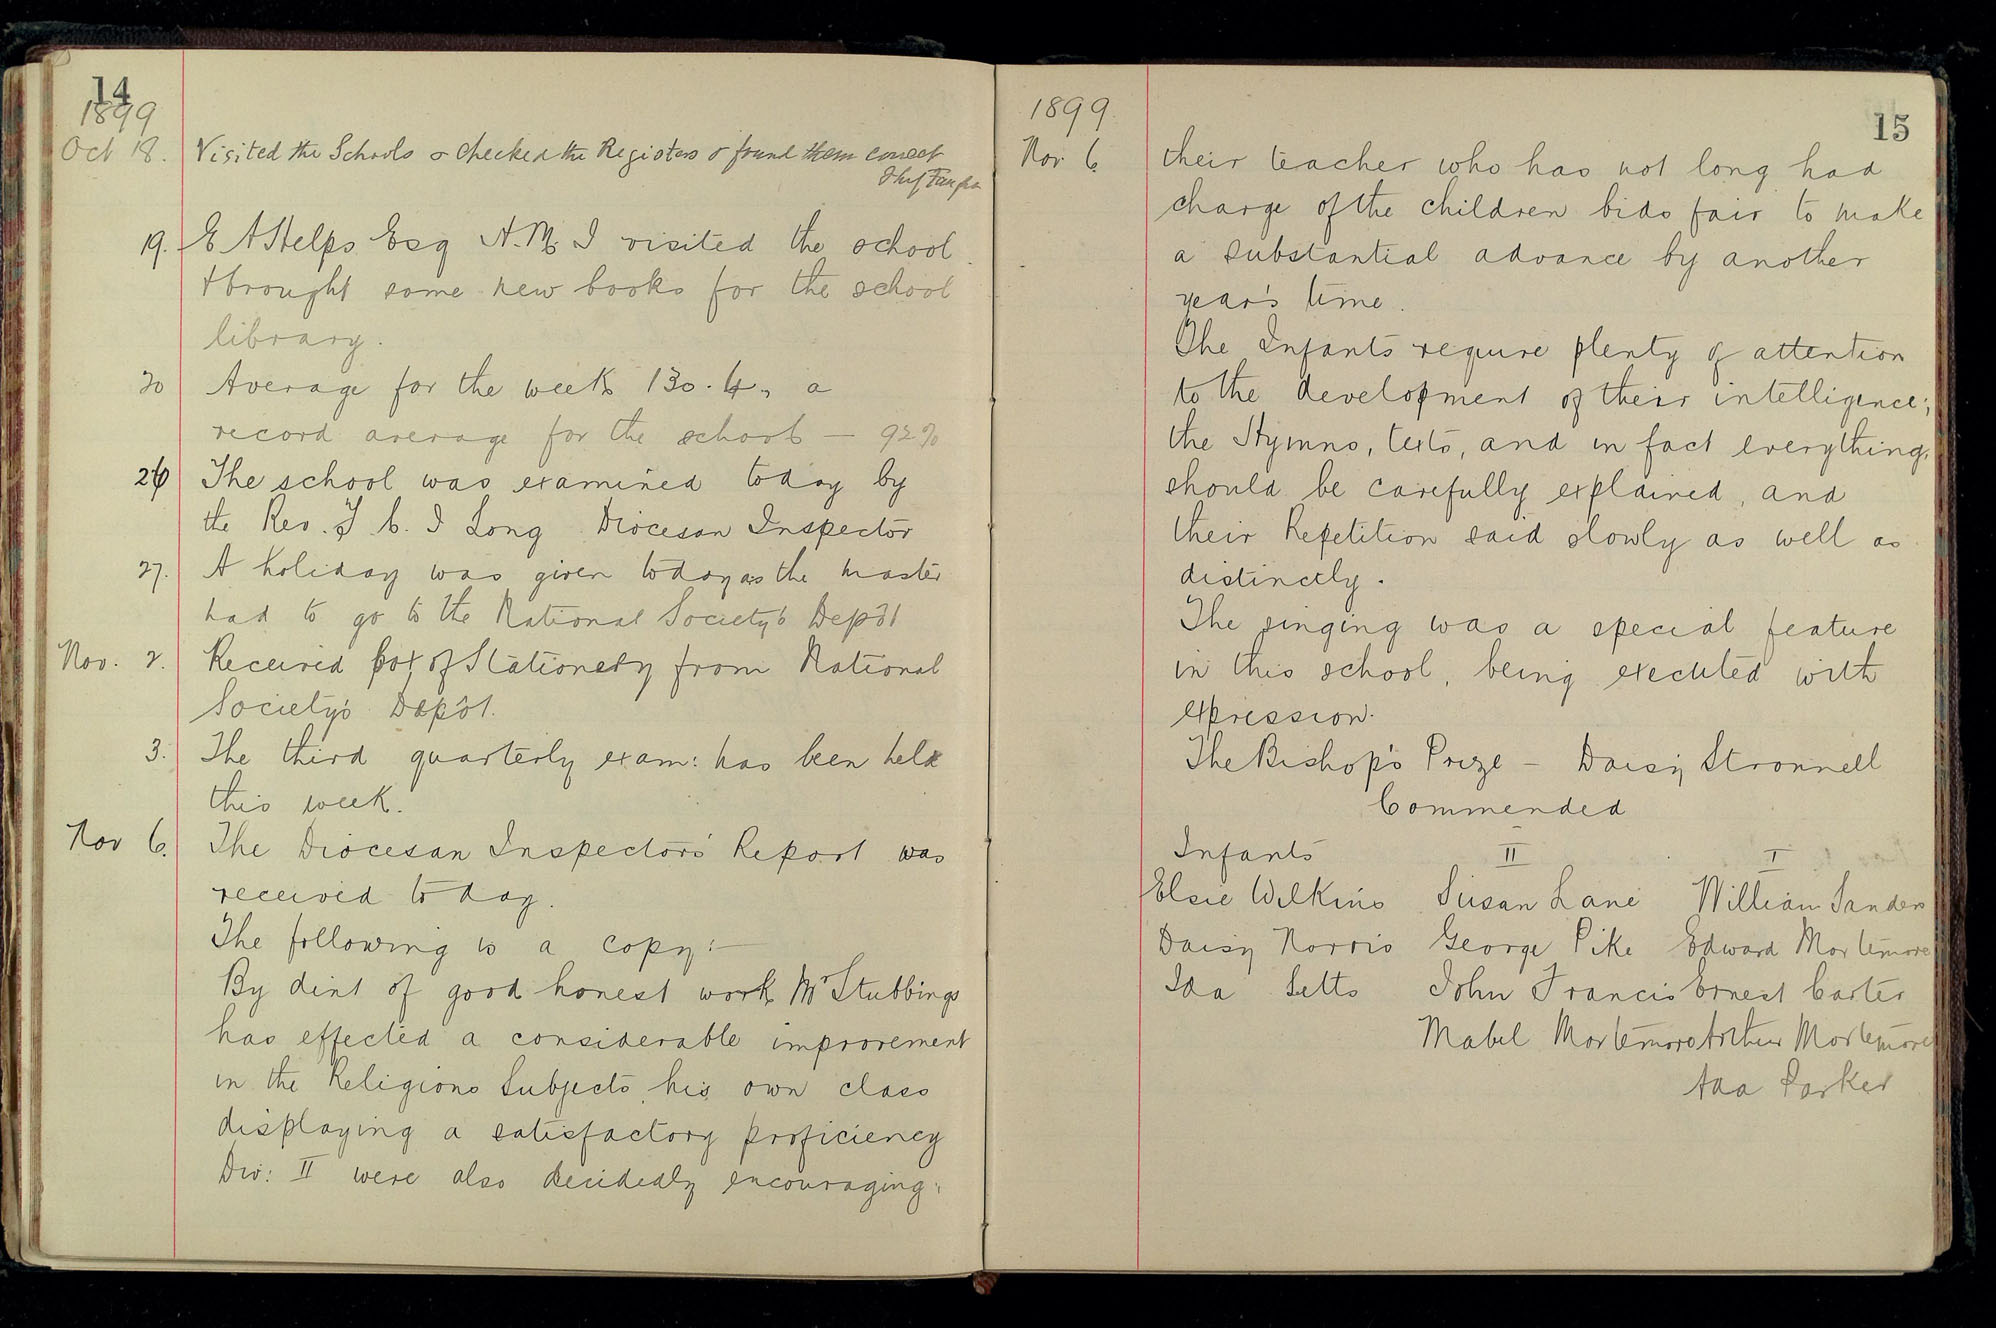 14
1899
Oct 18. Visited the Schools & checked the Registers & found them correct
19. E A Helps Esq H.M.I visited the school
& brought some new books for the school
library.
20 Average for the week 130.4, a
record average for the school — 92%
26 The school was examined today by
the Rev. J C. I Long Diocesan Inspector
27. A holiday was given today as the master
had to go to the National Society's Depôt
Nov. 2. Received box of Stationery from National
Society's Depôt.
3. The third quarterly exam: has been held
this week.
Nov 6. The Diocesan Inspectors' Report was
received today.
The following is a copy:—
By dint of good honest work Mr Stubbings
has effected a considerable improvement
in the Religious Subjects, his own class
displaying a satisfactory proficiency
Div: II were also decidedly encouraging:
15
1899
Nov 6. their teacher who has not long had
charge of the children bids fair to make
a substantial advance by another
year's time.
The Infants require plenty of attention
to the development of their intelligence;
the Hymns, texts, and in fact everything,
should be carefully explained, and
their Repetition said slowly as well as
distinctly.
The singing was a special feature
in this school, being executed with
expression.
The Bishop's Prize – Daisy Stronnell
Commended
Infants II I
Elsie Wilkins Susan Lane William Sanders
Daisy Norris George Pike Edward Mortemore
Ida Letts John Francis Ernest Carter
Mabel Mortemore Arthur Mortemore
Ada Parker